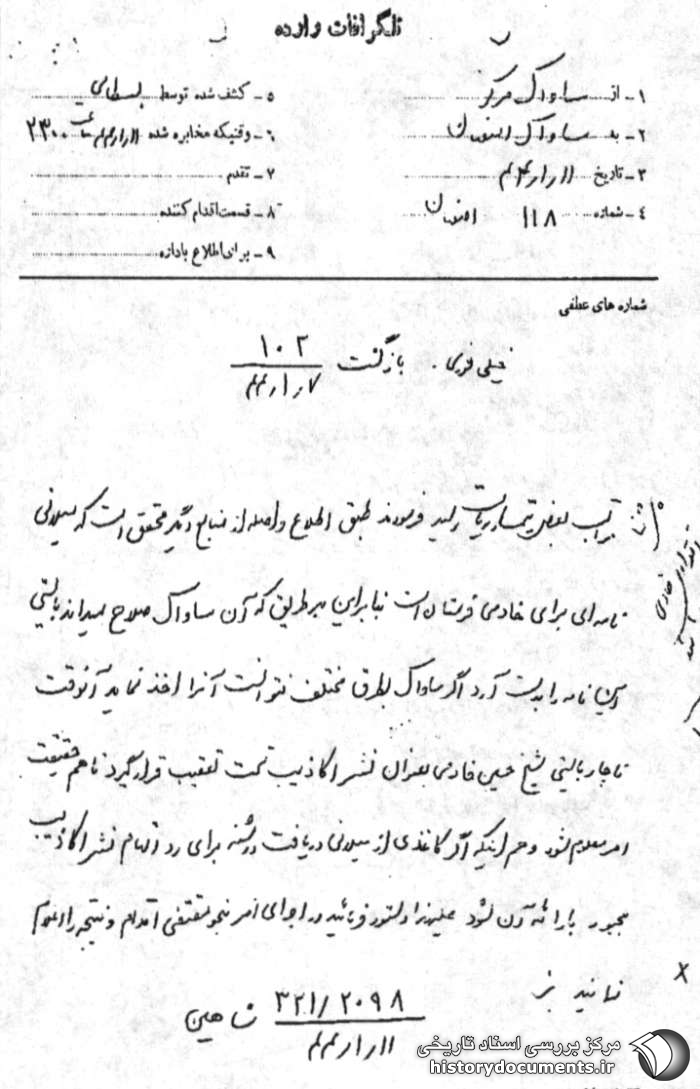 تلگرافات وارده
۱ـ از ساواک مرکز
۲ـ به ساواک اصفهان
۳ـ تاریخ ۱۱ر۱ر۴۴
۴ـ شماره ۱۱۸ اصفهان
۵ـ کشف شده توسط بسطامی
۶ـ وقتیکه مخابره شده ۱۱ر۱ر۴۴ ساعت ۲۳۰۰
۷ـ تقدم
۸ـ قسمت اقدام کننده
۹ـ برای اطلاع باداره
شماره های عطفی
خیلی فوری. بازگشت ۱۰۲
۷ر۱ر۴۴
مراتب بعرض تیمسار ریاست رسید فرمودند طبق اطلاع واصله از منابع دیگر محقق است که میلانی
نامه ای برای خادمی فرستاده است بنابراین بهر طریق که آن ساواک صلاح میداند بایستی
این نامه را بدست آرد اگر ساواک بطرق مختلف نتوانست آنرا اخذ نماید آنوقت
ناچار بایستی شیخ حسین خادمی بعنوان نشر اکاذیب تحت تعقیب قرار گیرد تا هم حقیقت
امر معلوم شود و هم اینکه اگر کاغذی از میلانی دریافت داشته برای رد اتهام نشر اکاذیب
مجبور بارائه آن شود علیهذا دستور فرمائید در اجرای امر بنحو مقتضی اقدام و نتیجه را اعلام
نمایند
۳۲۱/۲۰۹۸ شاهین
۱۱ر۱ر۴۴
مرکز بررسی اسناد تاریخی
historydocuments.ir